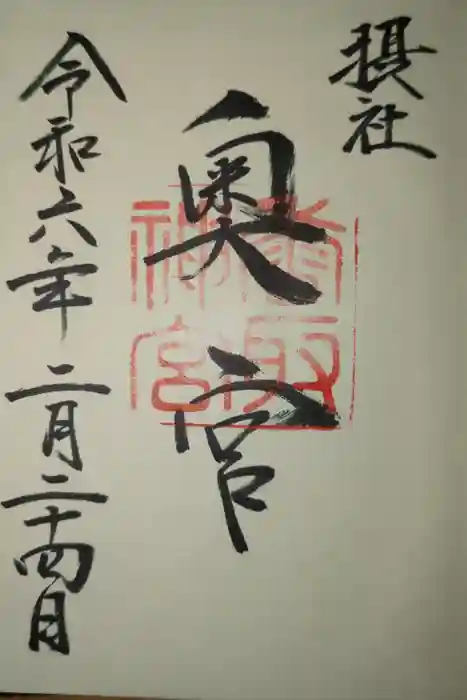 摂社
奥宮
香取
神宮
令和六年二月二十四日